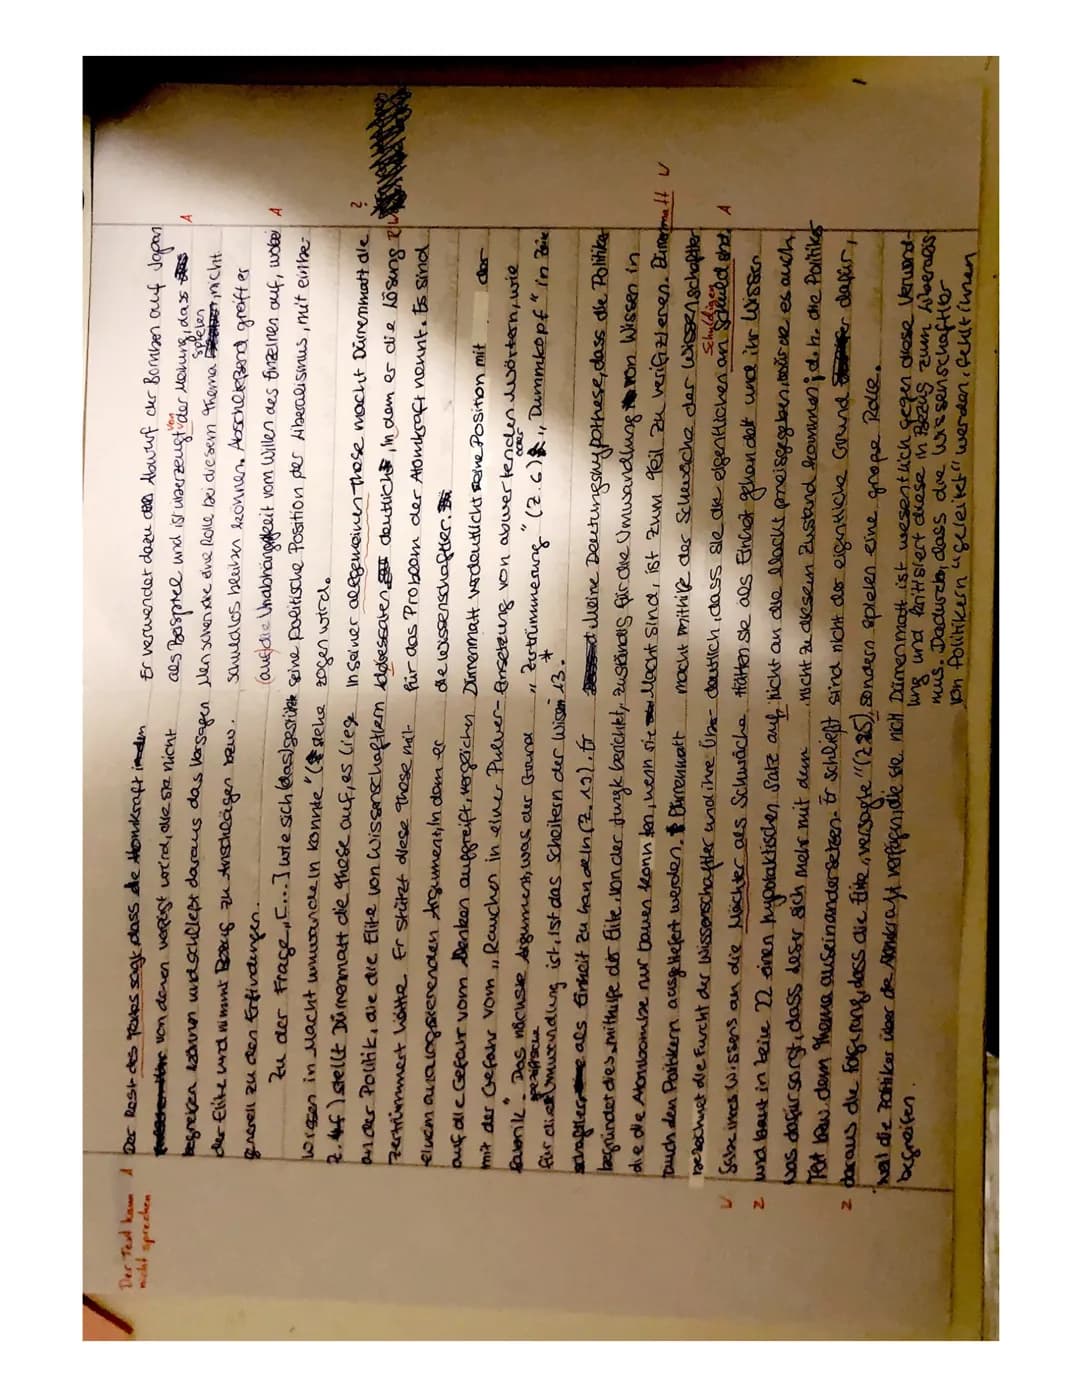 Der Text kann nicht sprechen
A
Der Rest des Textes sagt, dass die Atomkraft in dem
von denen verfügt wird, die sie nicht
begreifen können und schließt daraus das Versagen
der Elite und nimmt Bezug zu Anschlägen bzw.
generell zu den Erfindungen.
Zu der Frage „[...] wie sich (das) gestürzte
Wissen in Macht umwandeln konnte" (siehe
Z. 4f.) stellt Dürrenmatt die These auf, es liege
an der Politik, die die Elite von Wissenschaftlern
zertrümmert hätte. Er stützt diese These mit
einem analogisierenden Argument, in dem er
auf die Gefahr vom Denken aufgreift, vergleichen
mit der Gefahr vom „Rauchen in einer Pulver-
fabrik". Das nächste Argument, was der Grund
für die spezifische Umwandlung ist, ist das Scheitern der Wissen-
schaftler als Einheit zu handeln (Z. 19). Er
begründet dies, mithilfe der Elite, von der
die die Atombombe nur bauen konnten, wenn sie
durch den Politikern ausgeliefert werden. Dürrenmatt
bezeichnet die Furcht der Wissenschaftler und ihre Über-
V
gabe ihres Wissens an die Mächte als Schwäche
Z
und baut in Zeile 22 einen hypotaktischen Satz auf,
was dafür sorgt, dass Leser sich mehr mit dem
Text bzw. dem Thema auseinandersetzen. Er schließt
Z
daraus die Folgerung, dass die Elite „versagte" (Z. 25),
weil die Politiker über die Atomkraft verfügen, die sie nicht
begreifen.
Er verwendet dazu den Abwurf der Bomben auf Japan
als Beispiel und ist überzeugt von der Meinung, dass
A
Menschen eine Rolle bei diesem Thema spielen, nicht
schuldlos bleiben können. Anschließend greift er
(auf) die Unabhängigkeit vom Willen des Einzelnen auf, wobei
A
seine politische Position der Liberalismus, mit einbe-
zogen wird.
In seiner allgemeinen These macht Dürrenmatt die
?
deutlich, in dem er die Lösung
für das Problem der Atomkraft nennt. Es sind
die Wissenschaftler.
Dürrenmatt verdeutlicht seine Position mit der
Einsetzung von abwertenden Wörtern, wie
„Zertrümmerung" (Z. 6) oder „Dummkopf" in Zeile
13.
Meine Deutungshypothese, dass die Politiker
zuständig für die Umwandlung von Wissen in
Macht sind, ist zum Teil zu verifizieren. Dürrenmatt
V
macht mithilfe der Schwäche der Wissenschaftler
deutlich, dass sie die eigentlichen Schuldigen an Schuld sind.
A
Hätten sie als Einheit gehandelt und ihr Wissen
nicht an die Macht preisgegeben, würde es auch
nicht zu diesem Zustand kommen; d.h. die Politiker
sind nicht der eigentliche Grund dafür,
sondern spielen eine große Rolle.
Dürrenmatt ist wesentlich gegen diese Verwend-
ung und kritisiert diese in Bezug zum Liberalis-
mus. Dadurch, dass die Wissenschaftler
von Politikern „geleitet" werden, fehlt ihnen